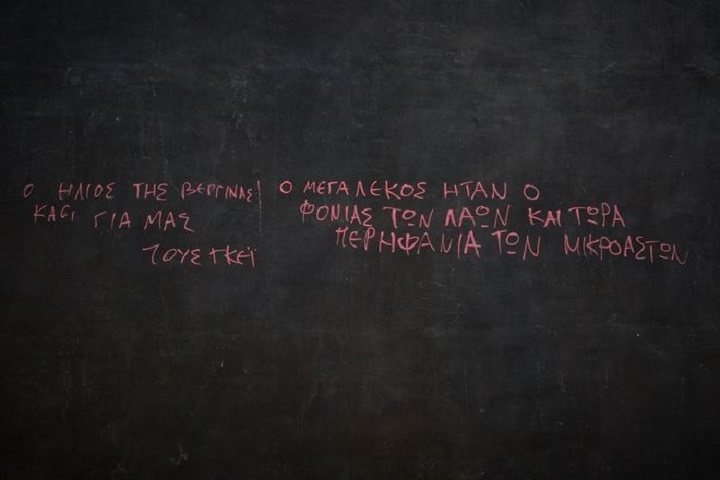 Ο ΗΛΙΟΣ ΤΗΣ ΒΕΡΓΙΝΑΣ
ΚΑΕΙ ΓΙΑ ΜΑΣ
ΤΟΥΣ ΓΚΕΪ
Ο ΜΕΓΑΛΕΚΟΣ ΗΤΑΝ Ο
ΦΟΝΙΑΣ ΤΩΝ ΛΑΩΝ ΚΑΙ ΤΩΡΑ
ΠΕΡΗΦΑΝΙΑ ΤΩΝ ΜΙΚΡΟΑΣΤΩΝ